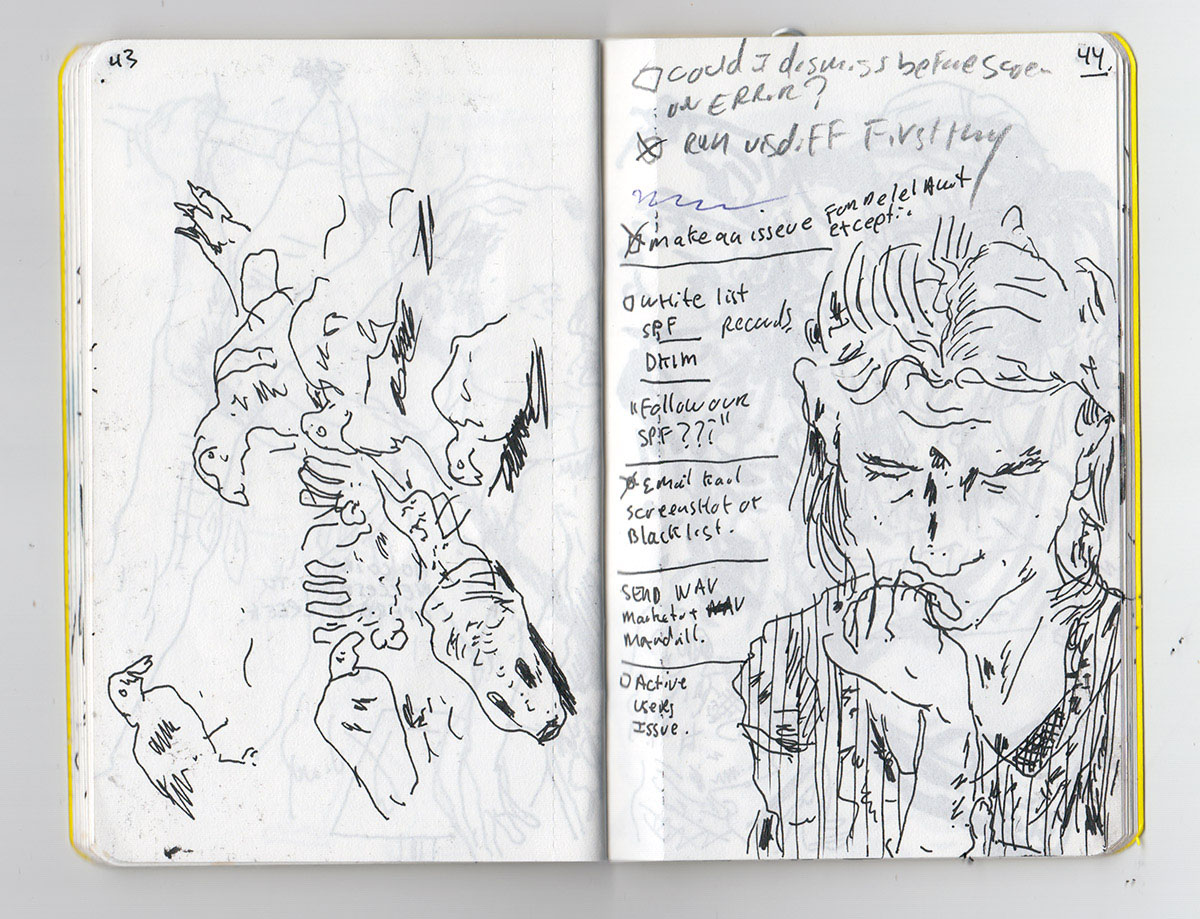 43
44
could I dismiss before
on ERROR?
Run visdiff First thing
make an isseue For Default
Except
White list
SPF Records
DKIM
"Follow our
SPF???"
Email
screenshot of
Blacklist.
SEND WAV
WAV
Mandrill.
Active
Users
Issue.